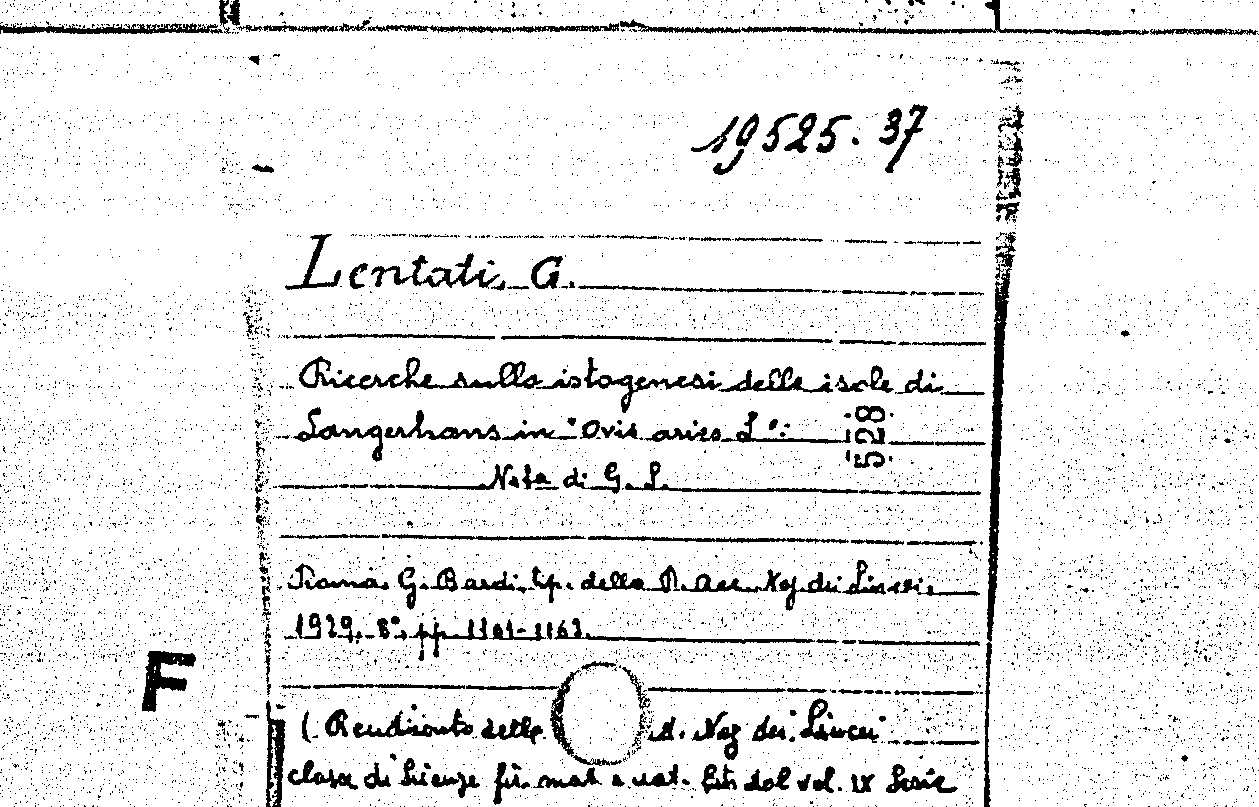 19525.37
Lentati, G.
Ricerche sulla istogenesi delle isole di
Langerhans in "Ovis aries L":
528
Nota di G. L.
Roma, G. Bardi, tip. della R. Acc. Naz. dei Lincei,
1929, 8°, pp. 1161-1163.
F
( Rendiconto delle d. Naz dei Lincei
classe di Scienze fis. mat e nat. Estr. dal vol. IX Serie